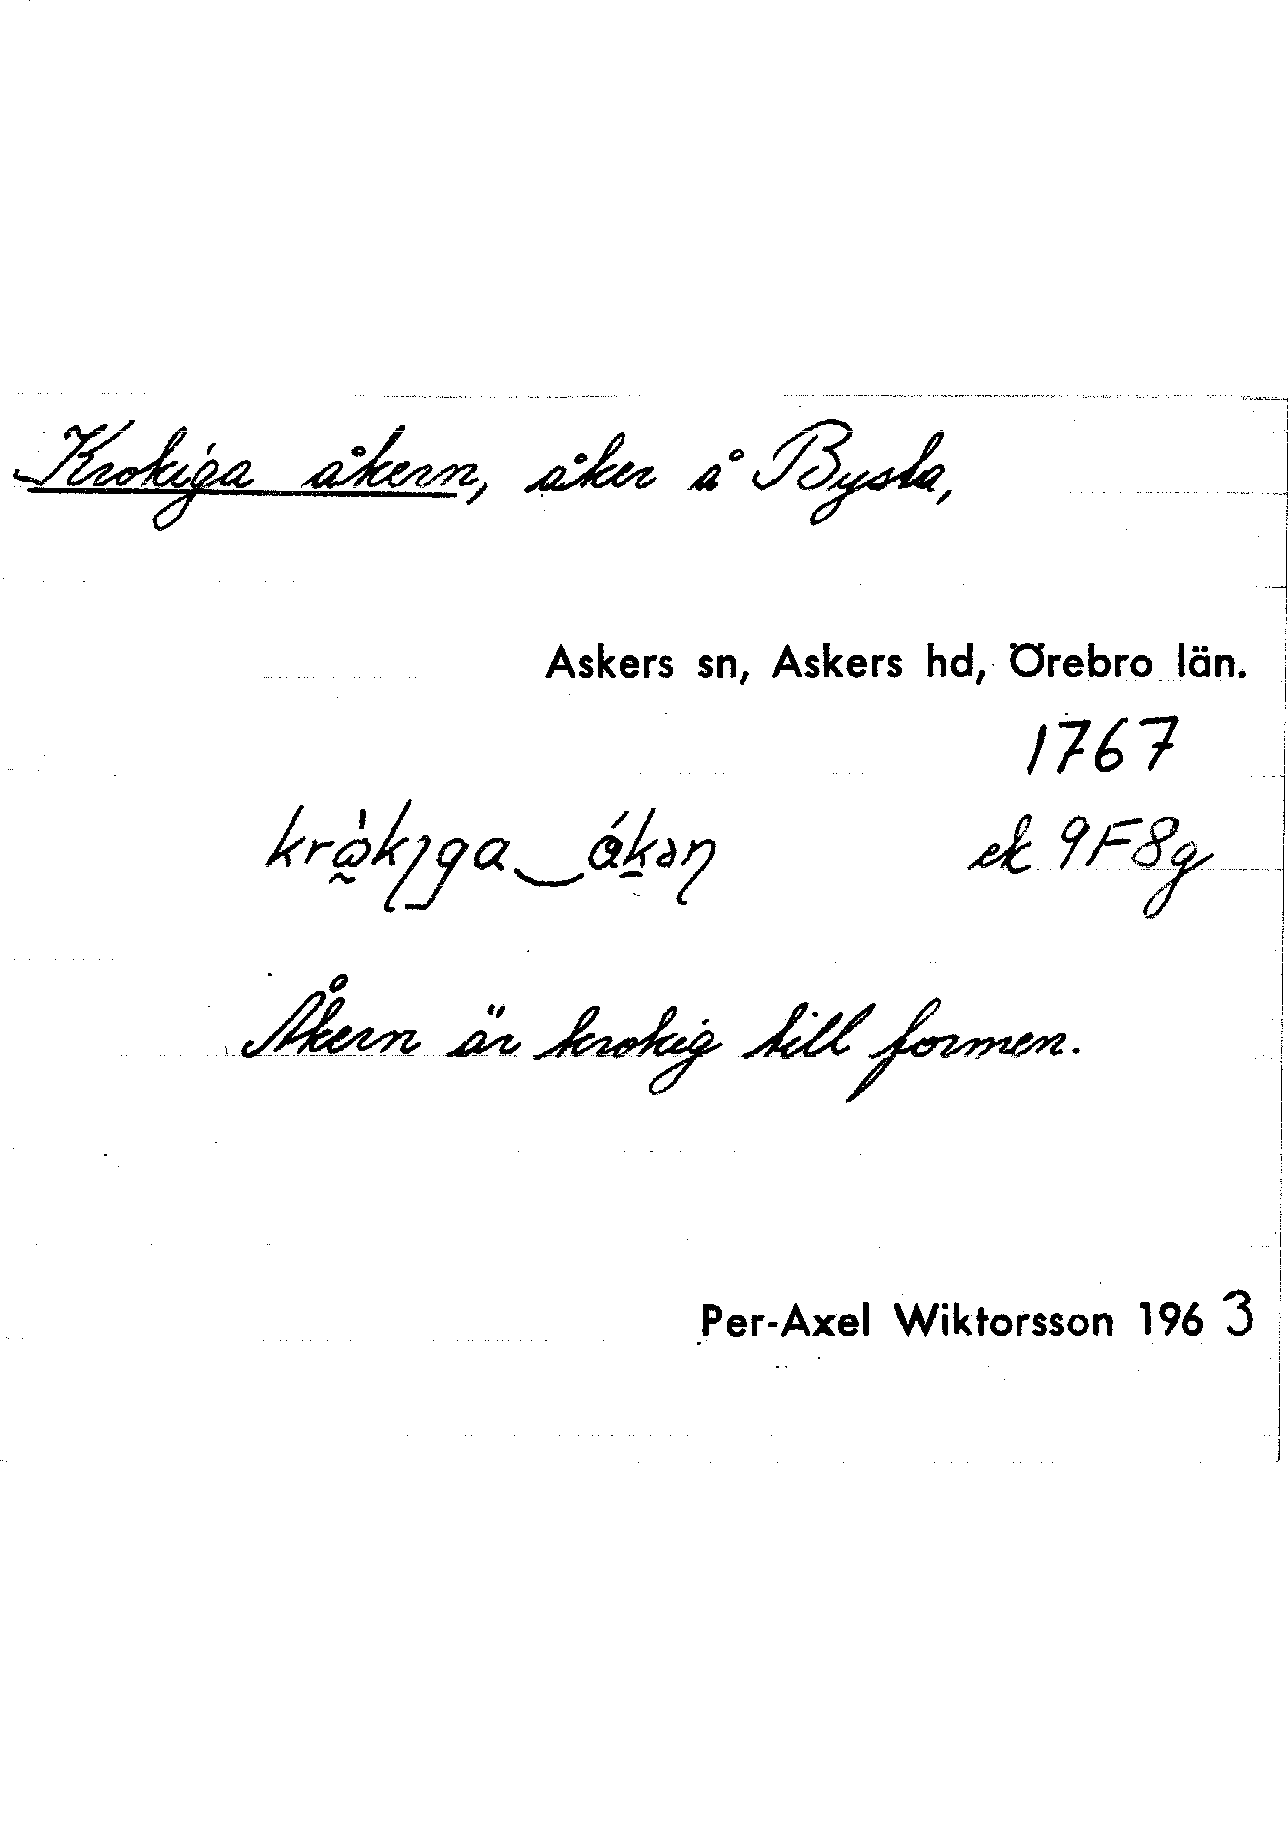 Krokiga åkern, åker å Bysta,
Askers sn, Askers hd, Örebro län.
1767
ek 9F8g
Åkern är krokig till formen.
Per-Axel Wiktorsson 1963